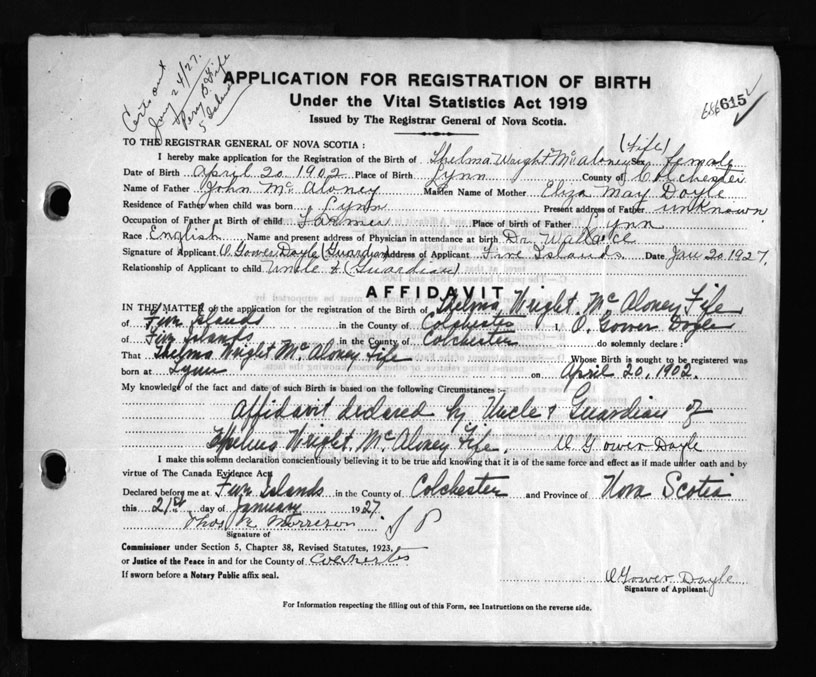 Cert out
Jany 24/27.
Percy B. Fife
5 Islands
APPLICATION FOR REGISTRATION OF BIRTH
Under the Vital Statistics Act 1919
Issued by The Registrar General of Nova Scotia.
686 615
TO THE REGISTRAR GENERAL OF NOVA SCOTIA :
(Fife)
I hereby make application for the Registration of the Birth of Thelma Wright McAloney Sex female
Date of Birth April 20. 1902 Place of Birth Lynn County of Colchester
Name of Father John McAloney Maiden Name of Mother Eliza May Doyle
Residence of Father when child was born Lynn Present address of Father unknown.
Occupation of Father at Birth of child Farmer Place of birth of Father Lynn
Race English Name and present address of Physician in attendance at birth Dr. Wallace
Signature of Applicant O. Gower Doyle (Guardian) Address of Applicant Five Islands Date Jan 20 1927.
Relationship of Applicant to child Uncle & (Guardian)
AFFIDAVIT
IN THE MATTER of the application for the registration of the Birth of Thelma Wright McAloney Fife
of Five Islands in the County of Colchester I, O. Gower Doyle
of Five Islands in the County of Colchester do solemnly declare :
That Thelma Wright McAloney Fife Whose Birth is sought to be registered was
born at Lynn on April 20, 1902.
My knowledge of the fact and date of such Birth is based on the following Circumstances :-
Affidavit declared by Uncle & Guardian of
Thelma Wright McAloney Fife. O Gower Doyle
I make this solemn declaration conscientiously believing it to be true and knowing that it is of the same force and effect as if made under oath and by
virtue of The Canada Evidence Act.
Declared before me at Five Islands in the County of Colchester and Province of Nova Scotia
this 21st day of January 1927.
Thos R Morrison J P
Signature of
Commissioner under Section 5, Chapter 38, Revised Statutes, 1923,
or Justice of the Peace in and for the County of Colchester
If sworn before a Notary Public affix seal.
O Gower Doyle
Signature of Applicant.
For Information respecting the filling out of this Form, see Instructions on the reverse side.